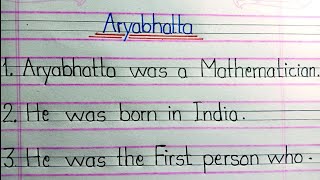 Aryabhatta
1. Aryabhatta was a Mathematician.
2. He was born in India.
3. He was the First person who.